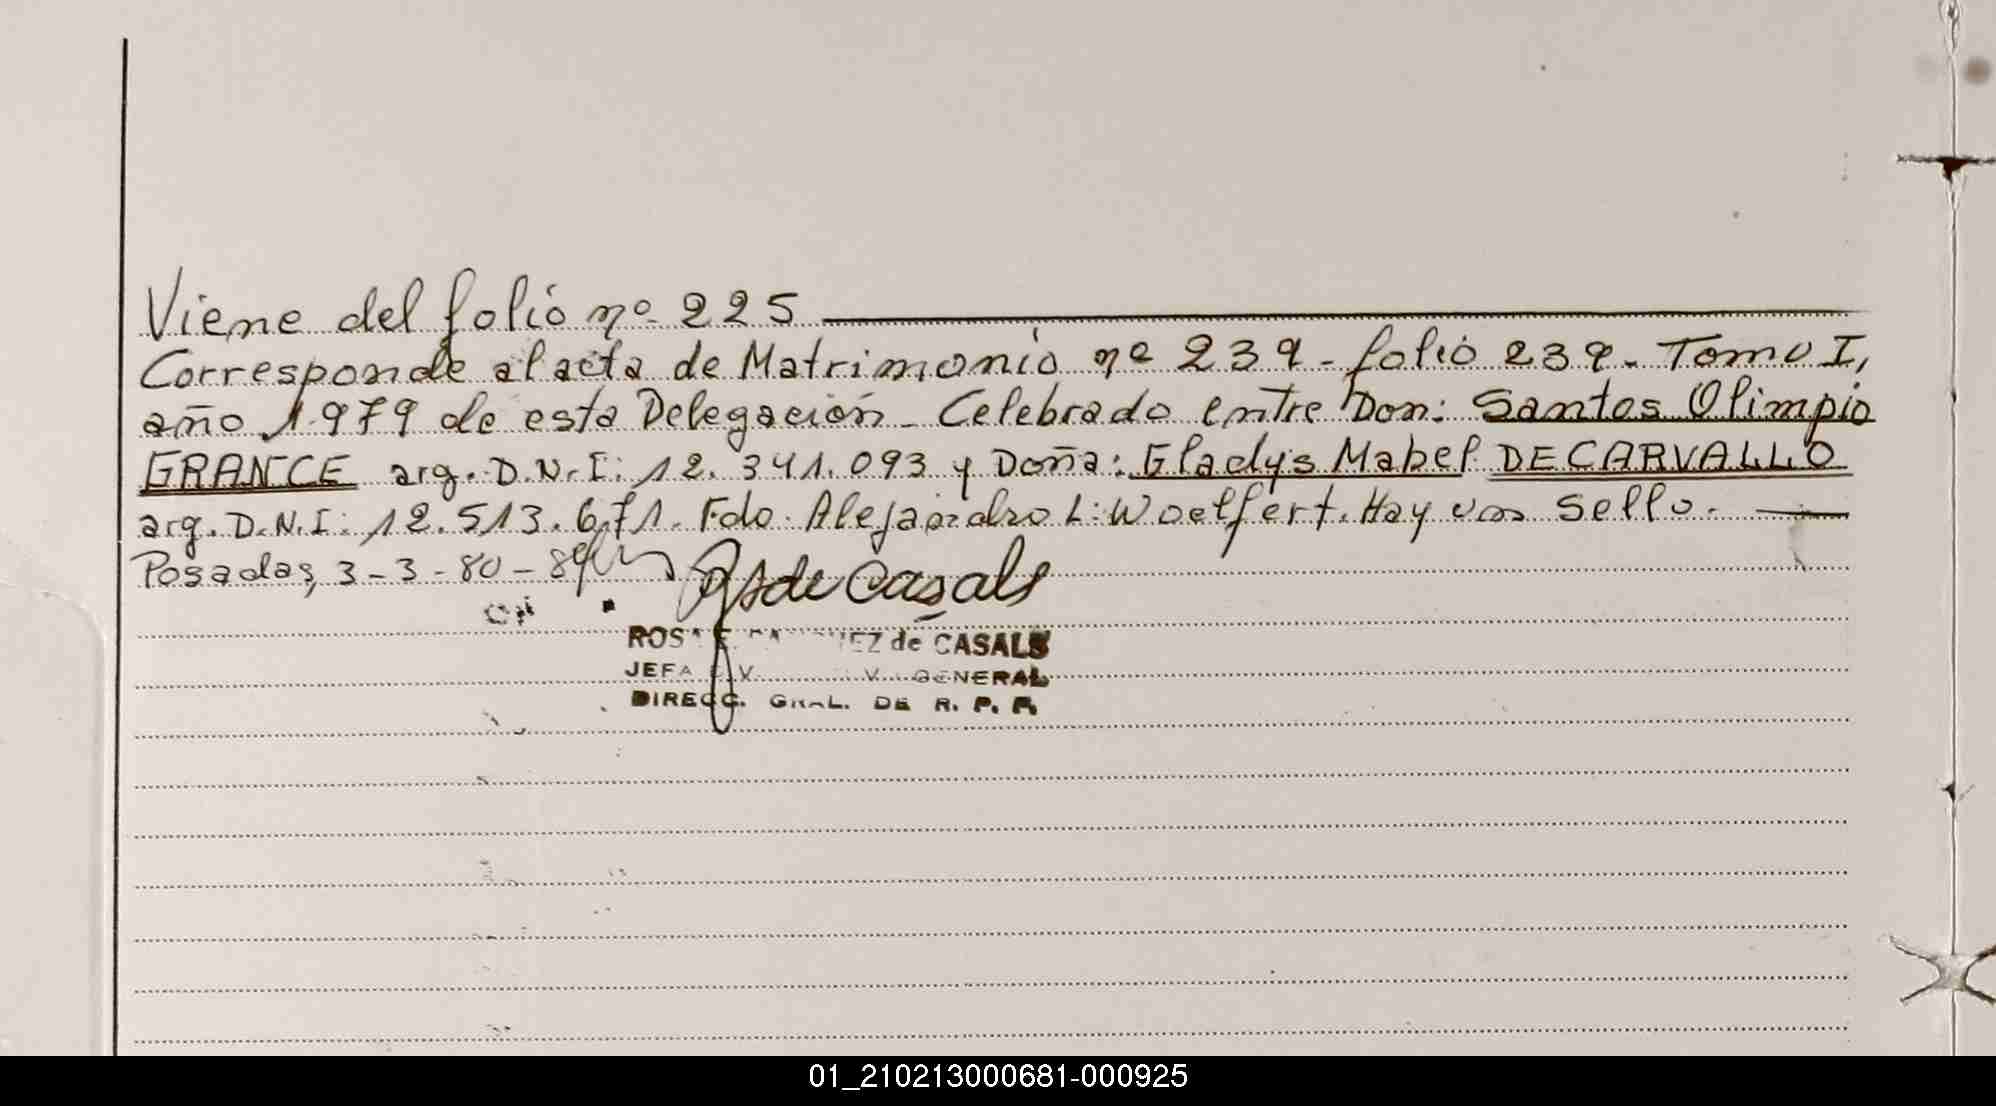 Viene del folio nº 225
Corresponde al acta de Matrimonio nº 239 - folio 239 - Tomo I,
año 1.979 de esta Delegación - Celebrado entre Don: Santos Olimpio
GRANCE arg. D.N.I: 12.341.093 y Doña: Gladys Mabel DE CARVALLO
arg. D.N.I: 12.513.671. Fdo. Alejandro L: Woelfert. Hay un Sello.
Posadas, 3-3-80 -
R S de Casals
ROSA E. EZ de CASALS
JEFA GENERAL
DIRECC. GRAL. DE R. P. P.
01_210213000681-000925